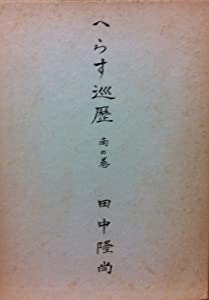 へらす巡歴
南の巻
田中隆尚